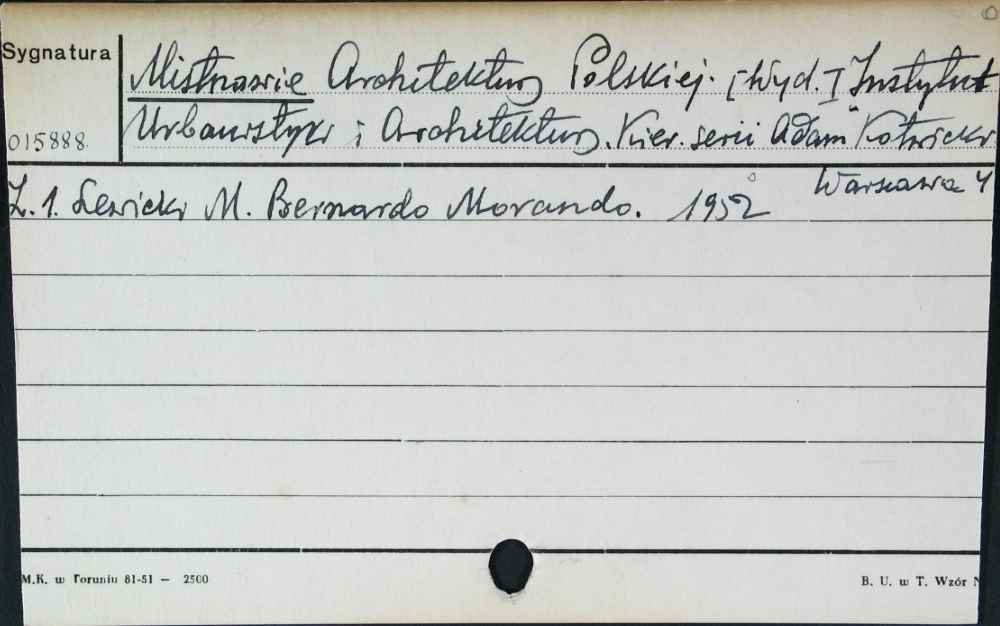 Sygnatura
Mistrzowie Architektury Polskiej. [Wyd.] Instytut
015888. Urbanistyki i Architektury. Kier. serii Adam Kotwicki
Warszawa 4
Z. 1. Lewicki M. Bernardo Morando. 1952
M.K. w Toruniu 81-51 — 2500
B. U. w T. Wzór N